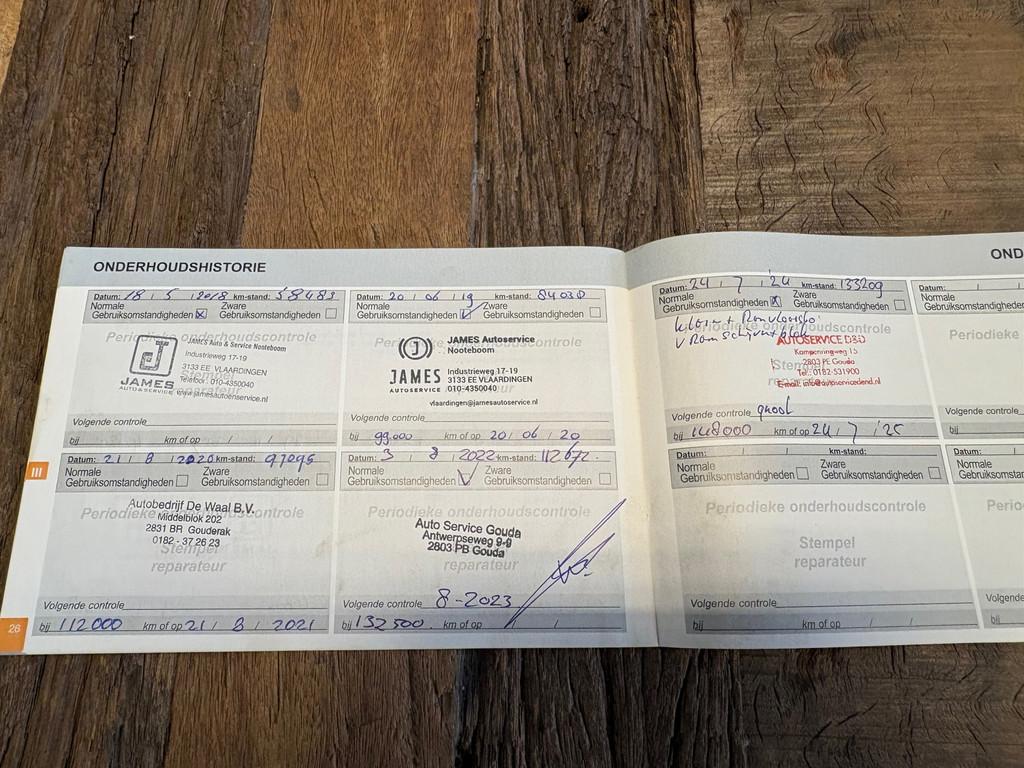 ONDERHOUDSHISTORIE
Datum: 18 / 5 / 2018 km-stand: 58483
Normale Gebruiksomstandigheden
Zware Gebruiksomstandigheden
Periodieke onderhoudscontrole
JAMES
AUTOSERVICE
James Auto & Service Nooteboom
Industrieweg 17-19
3133 EE VLAARDINGEN
Telefoon: 010-4350040
www.jamesautoenservice.nl
Stempel
reparateur
Volgende controle
bij km of op / /
Datum: 20 / 06 / 19 km-stand: 84038
Normale Gebruiksomstandigheden
Zware Gebruiksomstandigheden
Periodieke onderhoudscontrole
JAMES
AUTOSERVICE
JAMES Autoservice
Nooteboom
Industrieweg 17-19
3133 EE VLAARDINGEN
010-4350040
vlaardingen@jamesautoservice.nl
Volgende controle
bij 99.000 km of op 20 / 06 / 20
Datum: 21 / 8 / 2020 km-stand: 97295
Normale Gebruiksomstandigheden
Zware Gebruiksomstandigheden
Periodieke onderhoudscontrole
Autobedrijf De Waal B.V.
Middelblok 202
2831 BR Gouderak
0182 - 37 26 23
Stempel
reparateur
Volgende controle
bij 112000 km of op 21 / 8 / 2021
Datum: 3 / 8 / 2022 km-stand: 112672.
Normale Gebruiksomstandigheden
Zware Gebruiksomstandigheden
Periodieke onderhoudscontrole
Auto Service Gouda
Antwerpseweg 9-9
2803 PB Gouda
reparateur
Volgende controle 8-2023
bij 132500. km of op / /
III
26
OND
Datum: 24 / 7 / '24 km-stand: 133209
Normale Gebruiksomstandigheden
Zware Gebruiksomstandigheden
Periodieke onderhoudscontrole
klein +
AUTOSERVICE D3D
Kampenringweg 15
2803 PE Gouda
Tel.: 0182-531900
E-mail: info@autoservicedend.nl
Stempel
Volgende controle
bij 148000 km of op 24 / 7 / '25
Datum: / / km-stand:
Normale Gebruiksomstandigheden
Zware Gebruiksomstandigheden
Periodieke onderhoudscontrole
Stempel
reparateur
Volgende controle
bij km of op / /
Datum: /
Normale
Gebruiksomstandig
Periodieke
Volgende contro
bij
Datum: /
Normale
Gebruiksomstan
Perio
Volgende
bij